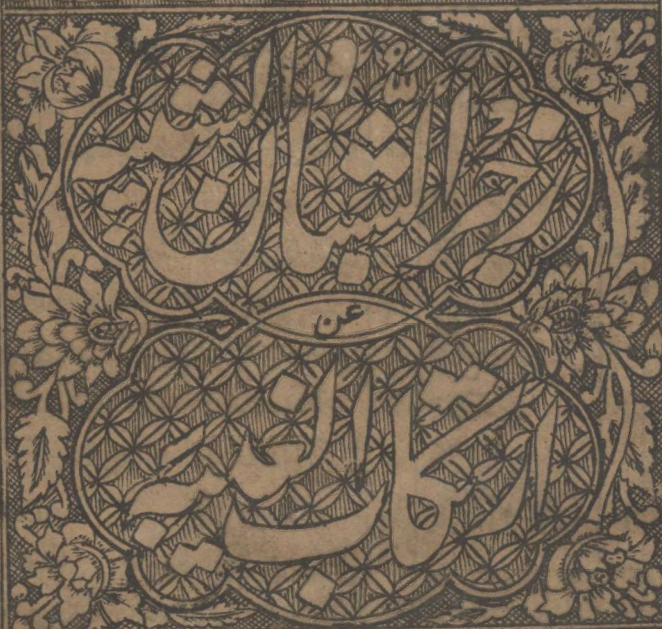 زجر الشُّبان والشيبه
عن
ارتكاب الغيبه